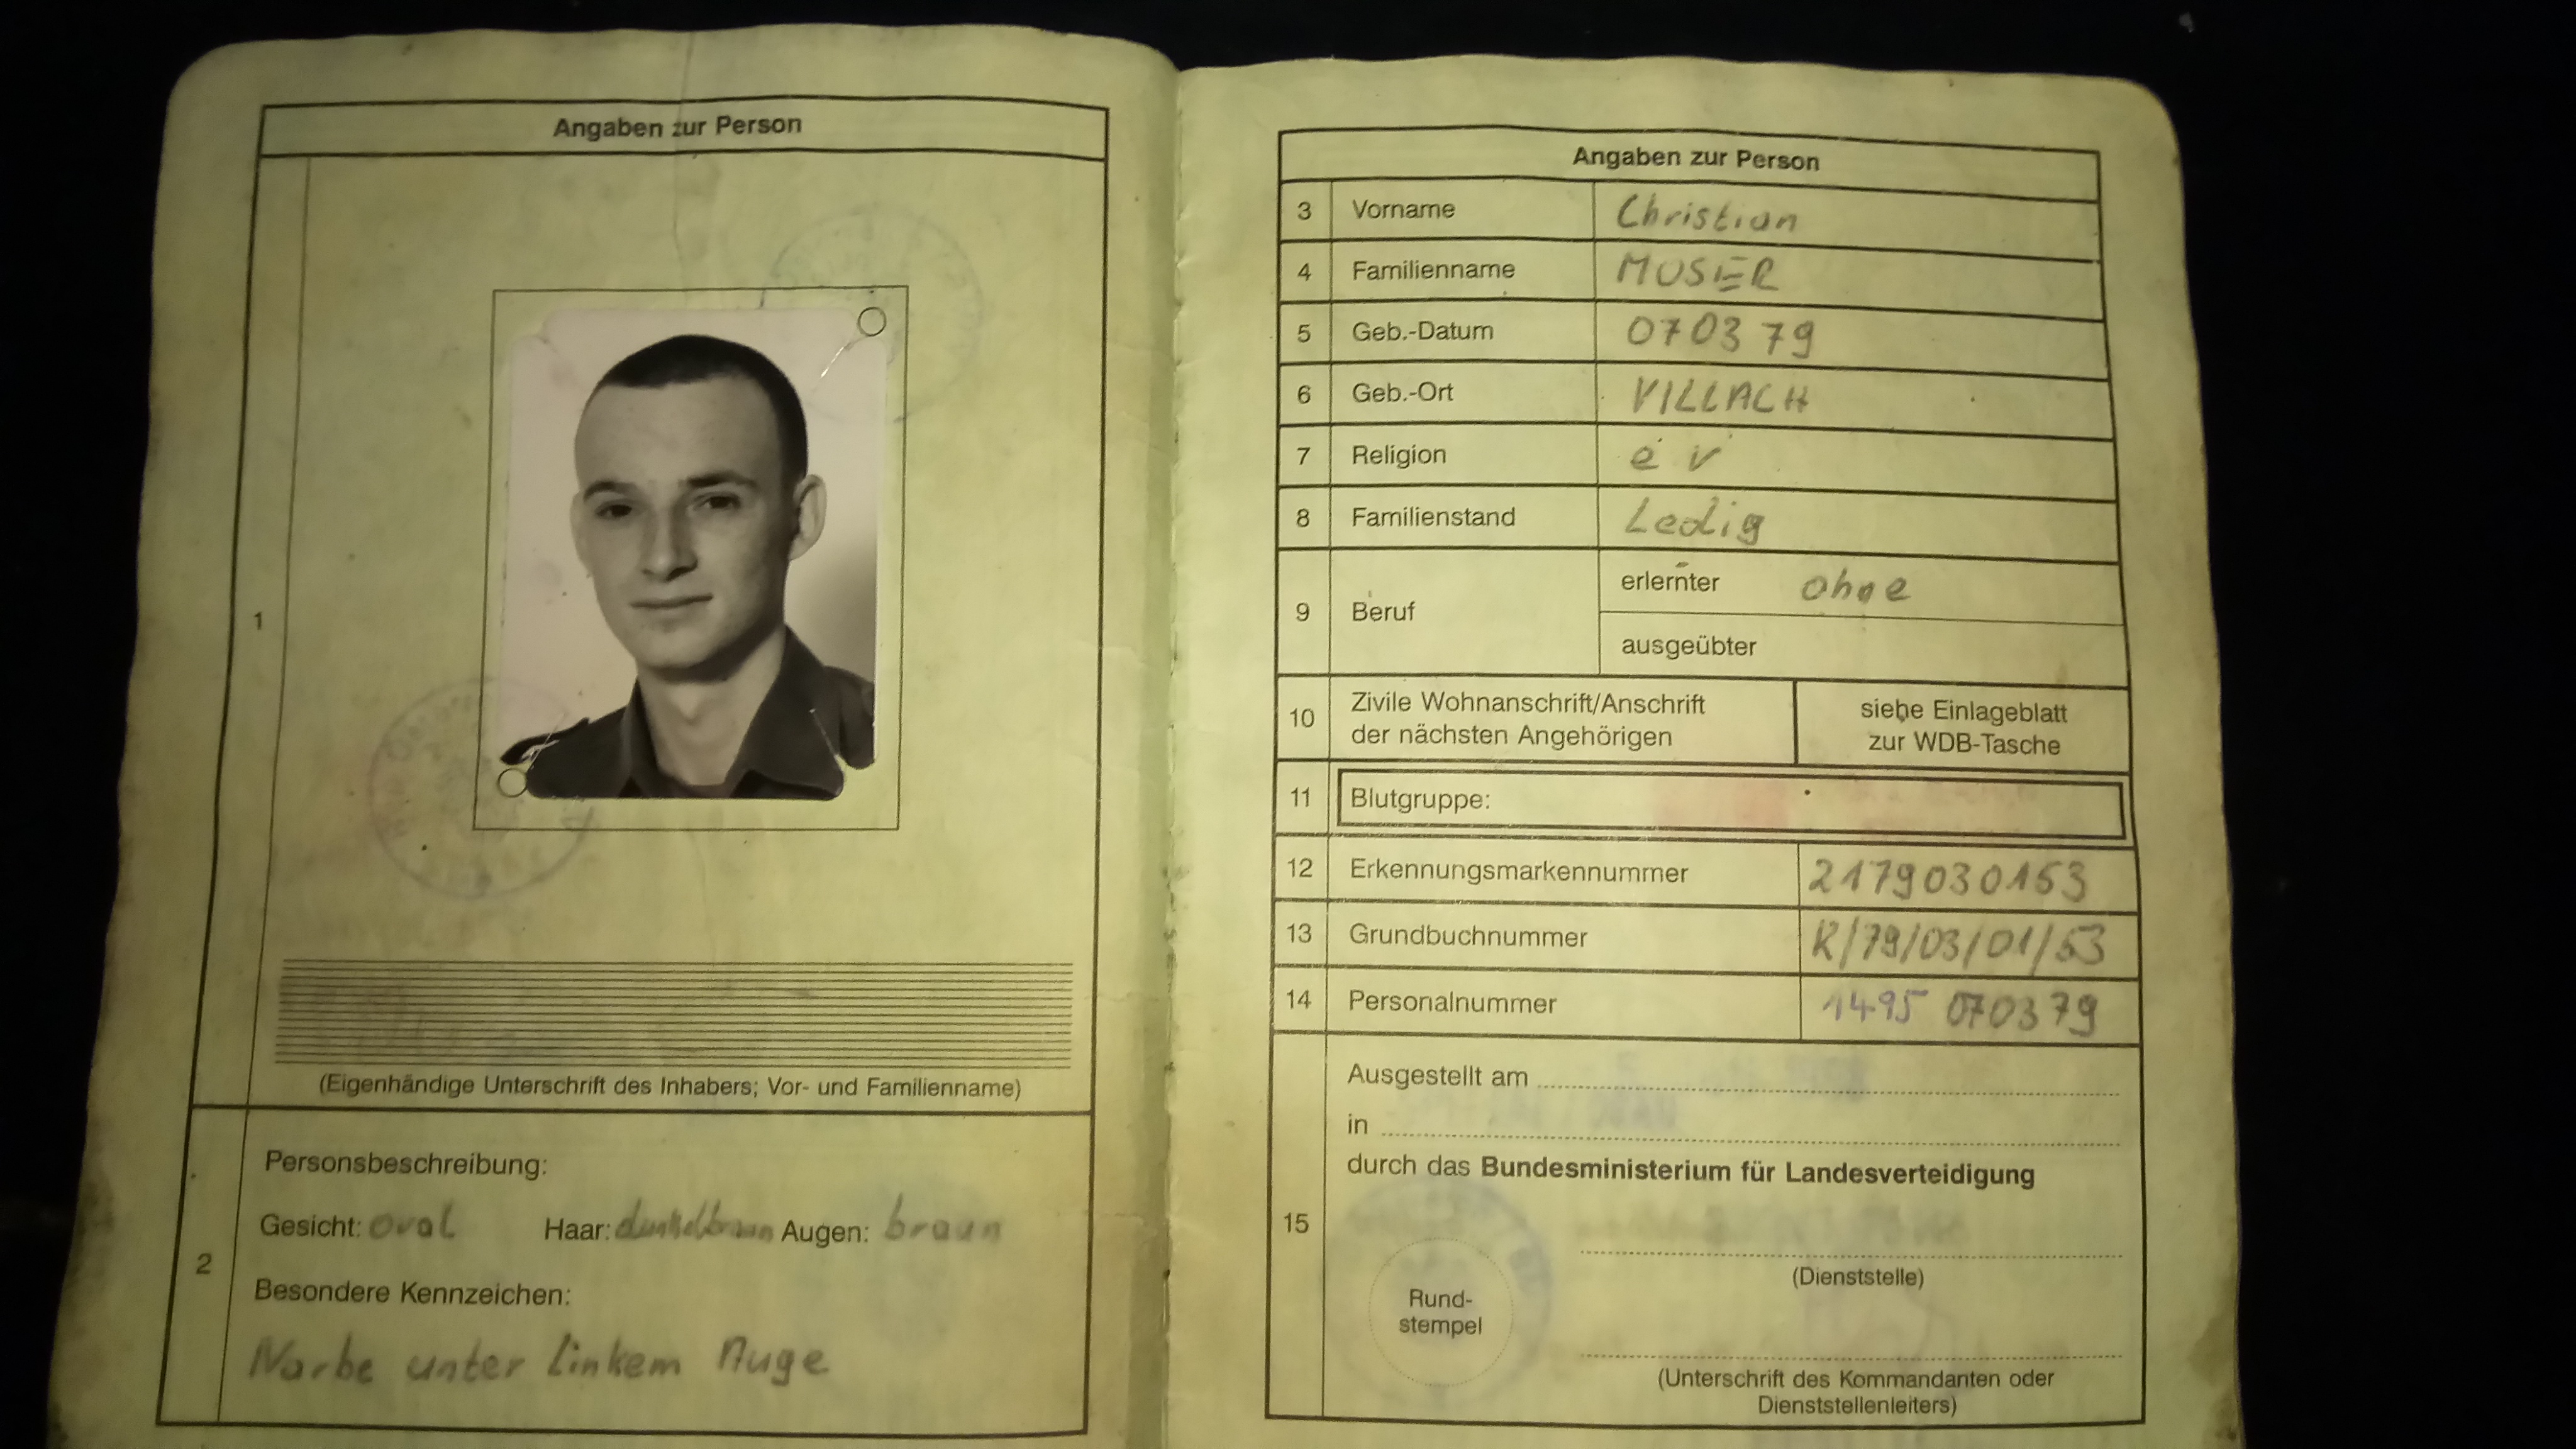 Angaben zur Person
1
(Eigenhändige Unterschrift des Inhabers; Vor- und Familienname)
2
Personsbeschreibung:
Gesicht: oval Haar: dunkelbraun Augen: braun
Besondere Kennzeichen:
Narbe unter linkem Auge
Angaben zur Person
3 Vorname Christian
4 Familienname MOSER
5 Geb.-Datum 070379
6 Geb.-Ort VILLACH
7 Religion ev
8 Familienstand Ledig
9 Beruf erlernter ohne
ausgeübter
10 Zivile Wohnanschrift/Anschrift
der nächsten Angehörigen
siehe Einlageblatt
zur WDB-Tasche
11 Blutgruppe:
12 Erkennungsmarkennummer 2179030153
13 Grundbuchnummer K/79/03/01/53
14 Personalnummer 1495 070379
15
Ausgestellt am
in
durch das Bundesministerium für Landesverteidigung
(Dienststelle)
Rund-
stempel
(Unterschrift des Kommandanten oder
Dienststellenleiters)